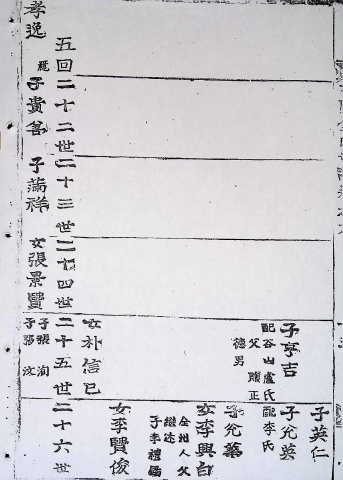 五回
二十二世
二十三世
二十四世
二十五世
二十六世
孝逸
子貴
子祥
女張景賢
子張洵
子張汶
子亨吉
配谷山盧氏
父
德男
女朴信己
子英仁
子允英
配李氏
子允
女李興白
全州人父
繼達
子李禮
女李賢俊